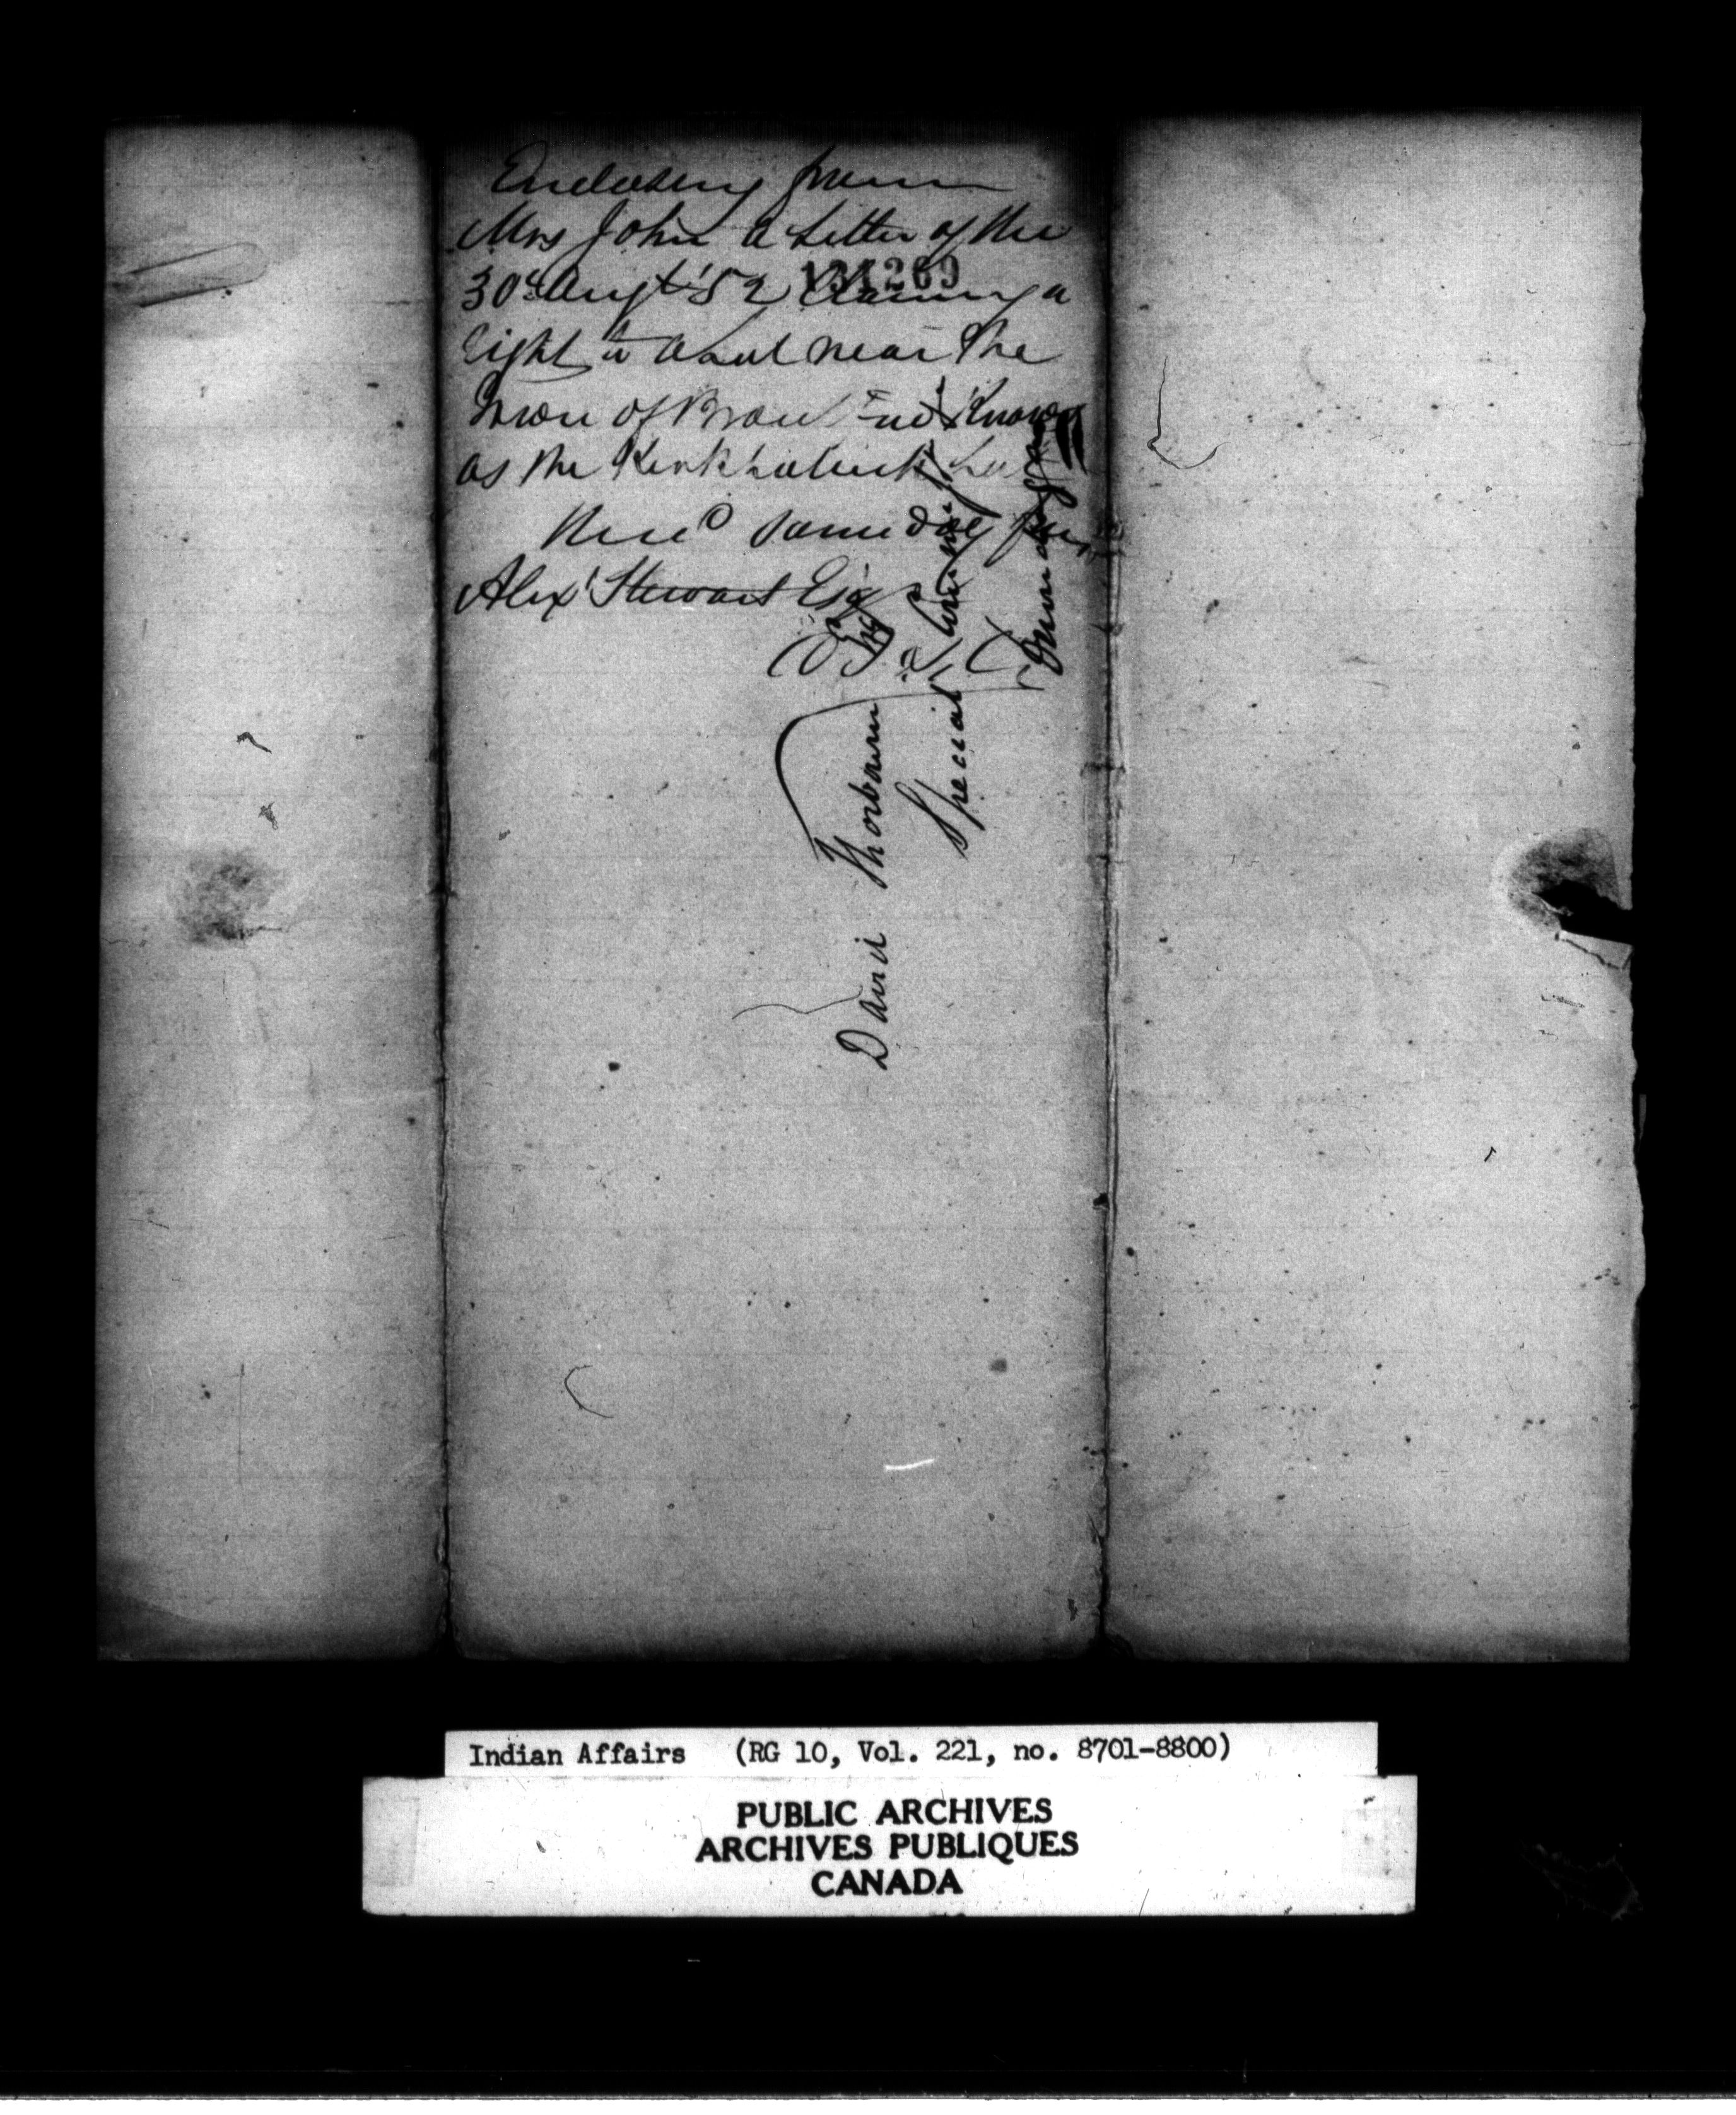 Enclosing from
Mrs John a Letter of the
30th Augt '52 Claiming a
131269
right to a Lot near the
Town of Brantford Known
as the Kerk Lot
Recd same day from
Alexr Stewart Esq
David Thorburn Esq
Special Commissr
Indian Affairs (RG 10, Vol. 221, no. 8701-8800)
PUBLIC ARCHIVES
ARCHIVES PUBLIQUES
CANADA